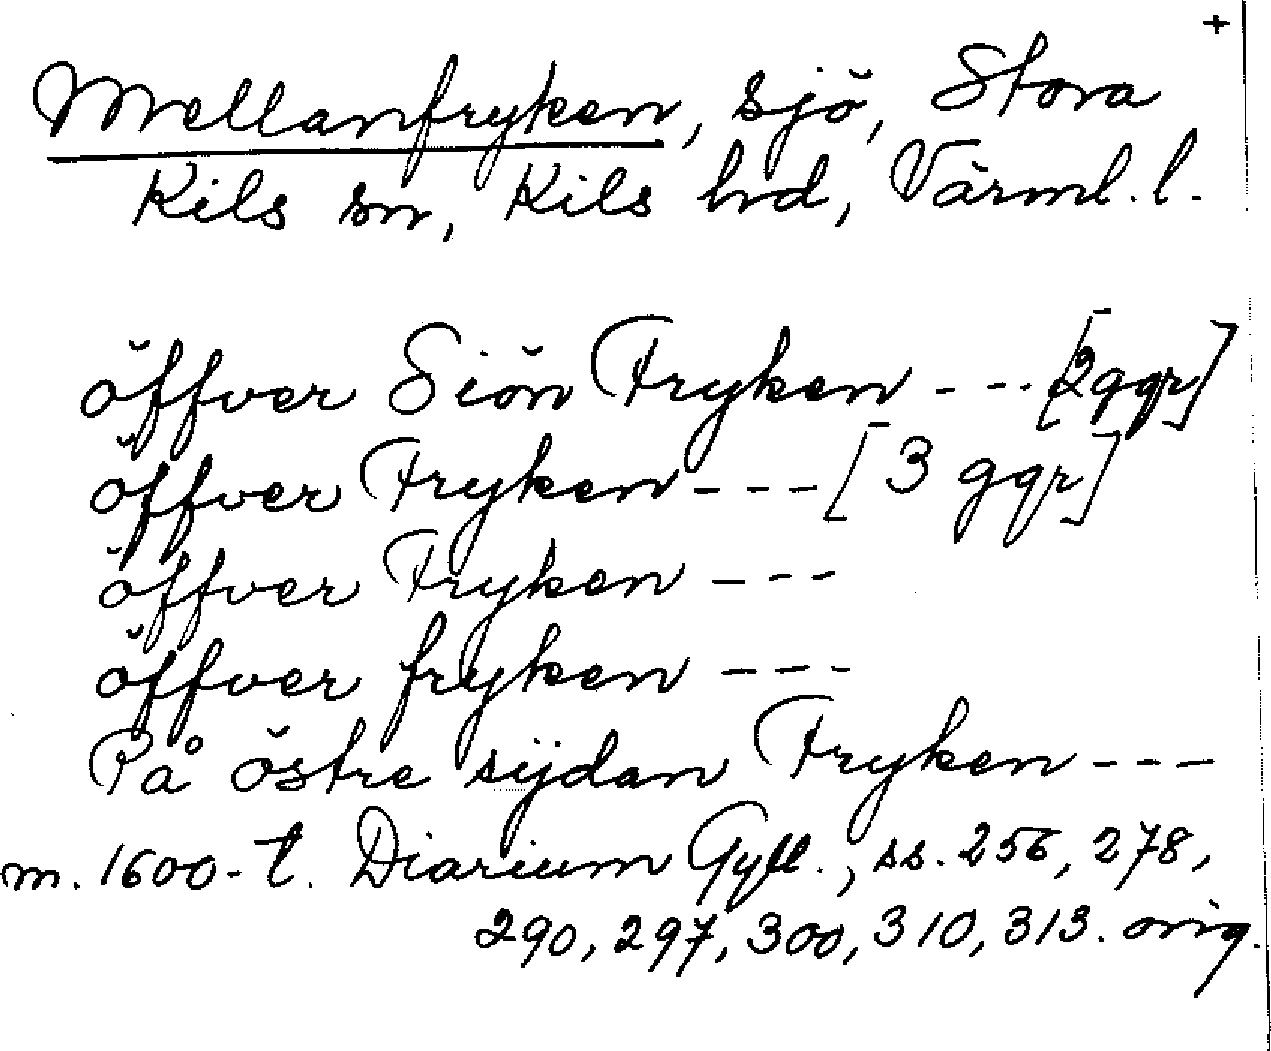 +
Mellanfryken, sjö, Stora
Kils sn, Kils hd, Värml. l.
öffver Siön Fryken --- [2 ggr]
öffver Fryken --- [3 ggr]
öffver Fryken ---
öffver fryken ---
På östre sijdan Fryken ---
m. 1600-t. Diarium Gyll., ss. 256, 278,
290, 297, 300, 310, 313. orig.